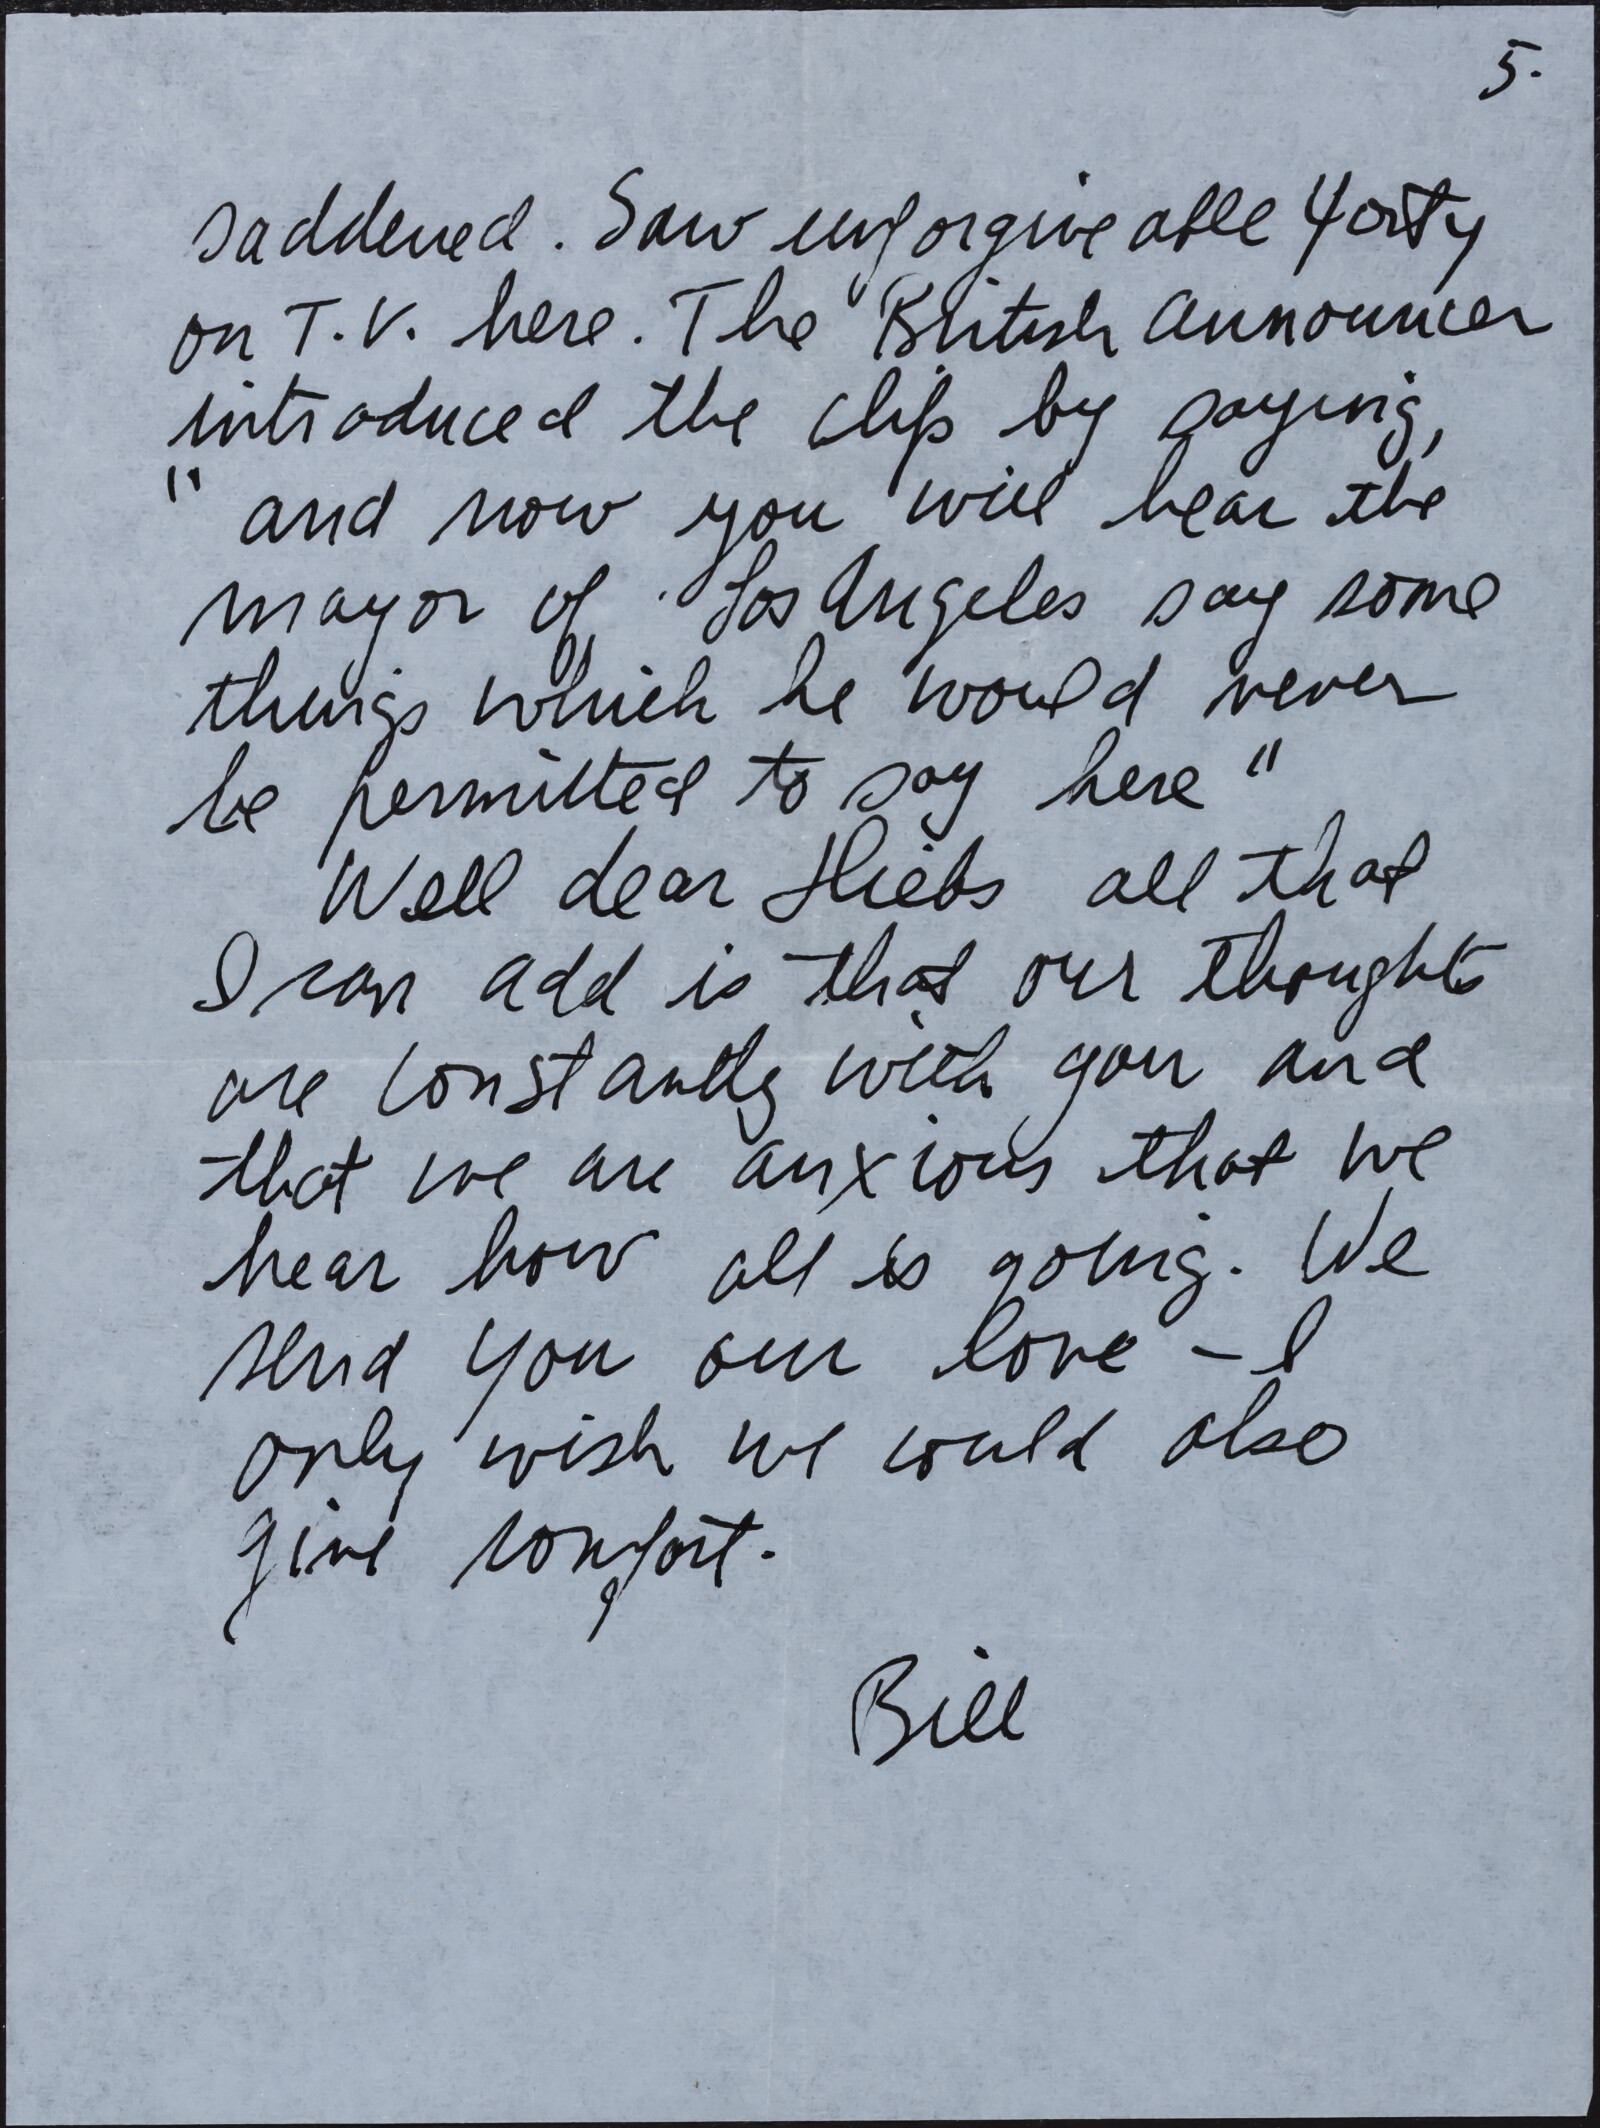 5.
saddened. Saw unforgiveable Yorty
on T.V. here. The British announcer
introduced the clip by saying,
"and now you will hear the
mayor of Los Angeles say some
things which he would never
be permitted to say here"
Well dear Hiebs all that
I can add is that our thoughts
are constantly with you and
that we are anxious that we
hear how all is going. We
send you our love – I
only wish we could also
give comfort.
Bill